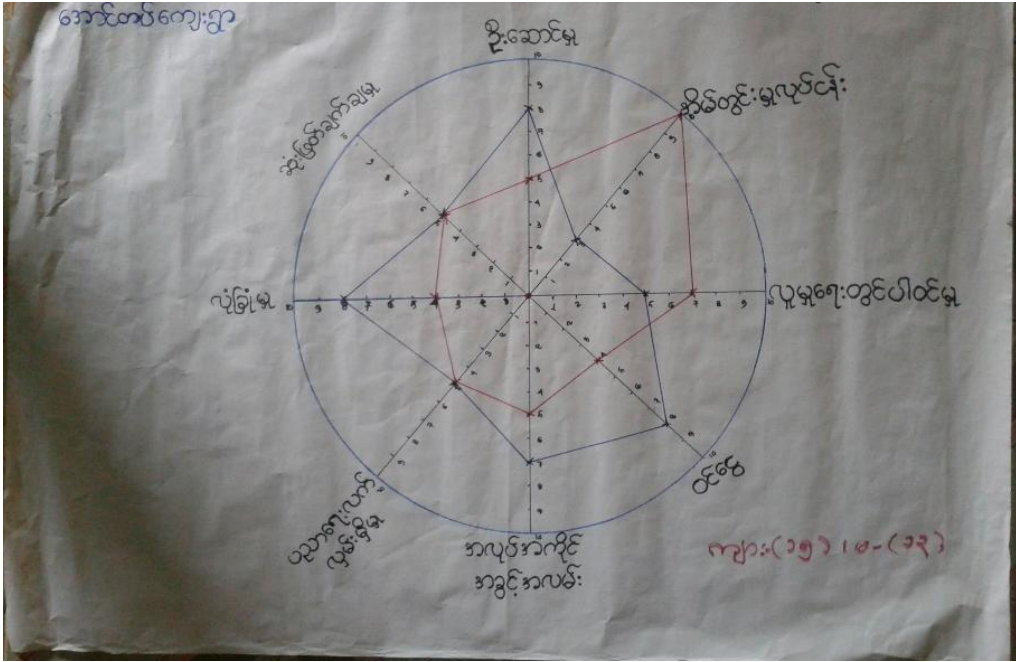 အောင်တပ်ကျေးရွာ
ဦးဆောင်မှု
အိမ်တွင်းမှုလုပ်ငန်း
လူမှုရေးတွင်ပါဝင်မှု
ဝင်ငွေ
အလုပ်အကိုင်
အခွင့်အလမ်း
ပညာရေးလက်
လှမ်းမှီမှု
လုံခြုံမှု
ဆုံးဖြတ်ချက်ချမှု
ကျား-(၁၅) ၊ မ-(၁၃)